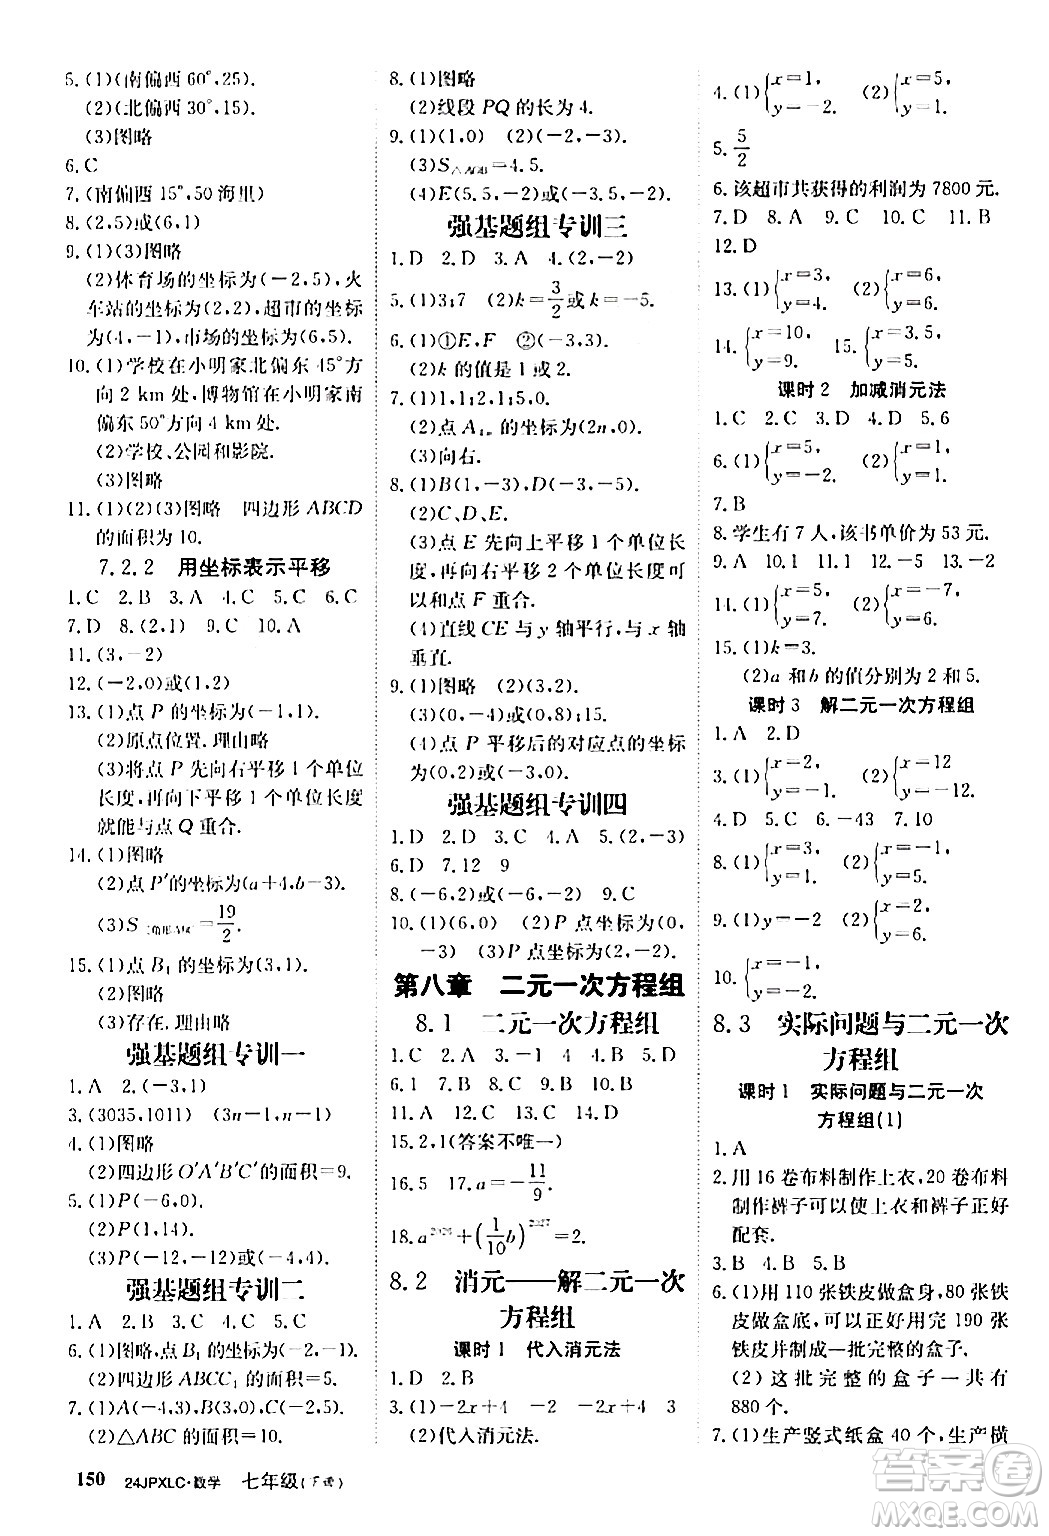 5.(1)(南偏西 60°,25).
(2)(北偏西 30°,15).
(3)图略
6.C
7.(南偏西 15°,50 海里)
8.(2,5)或(6,1)
9.(1)(3)图略
(2)体育场的坐标为(-2,5),火
车站的坐标为(2,2),超市的坐标
为(4,-1),市场的坐标为(6,5).
10.(1)学校在小明家北偏东 45°方
向 2 km 处,博物馆在小明家南
偏东 50°方向 4 km 处.
(2)学校、公园和影院.
(3)图略
11.(1)(2)(3)图略 四边形 ABCD
的面积为 10.
7.2.2 用坐标表示平移
1.C 2.B 3.A 4.C 5.C 6.C
7.D 8.(2,1) 9.C 10.A
11.(3,-2)
12.(-2,0)或(1,2)
13.(1)点 P 的坐标为(-1,1).
(2)原点位置、理由略
(3)将点 P 先向右平移 1 个单位
长度,再向下平移 1 个单位长度
就能与点 Q 重合.
14.(1)图略
(2)点 P′的坐标为(a+4,b-3).
(3)S =19/2.
15.(1)点 B₁ 的坐标为(3,1).
(2)图略
(3)存在.理由略
强基题组专训一
1.A 2.(-3,1)
3.(3035,1011) (3n-1,n-1)
4.(1)图略
(2)四边形 O′A′B′C′的面积=9.
5.(1)P(-6,0).
(2)P(1,14).
(3)P(-12,-12)或(-4,4).
强基题组专训二
1.A 2.D 3.B 4.C 5.C
6.(1)图略,点 B₁ 的坐标为(-2,4).
(2)四边形 ABCC₁ 的面积=5.
7.(1)A(-1,3),B(3,0),C(-2,5).
(2)△ABC 的面积=10.
8.(1)图略
(2)线段 PQ 的长为 4.
9.(1)(1,0) (2)(-2,-3).
(3)S△AOB=4.5.
(4)E(5.5,-2)或(-3.5,-2).
强基题组专训三
1.D 2.D 3.A 4.(-3,2)
5.(1)3;7 (2)k=3/2或k=-5.
6.(1)①E,F ②(-3,3).
(2)k 的值是 1或 2.
7.(1)1,1;2,1;5,0.
(2)点 A 的坐标为(2n,0).
(3)向右.
8.(1)B(1,-3),D(-3,5).
(2)C、D、E.
(3)点 E 先向上平移 1 个单位长
度,再向右平移 10 个单位长度可
以和点 F 重合.
(4)直线 CE 与 y 轴平行,与 x 轴
垂直.
9.(1)图略 (2)(3,2).
(3)(0,-4)或(0,8);15.
(4)点 P 平移后的对应点的坐标为
(0,2)或(-2,0).
强基题组专训四
1.D 2.D 3.C 4.A 5.(2,-3)
6.D 7.12 9
8.(-6,2)或(-6,-2) 9.C
10.(1)(6,0) (2)P 点坐标为(0,
-3) (3)P 点坐标为(2,-2).
第八章 二元一次方程组
8.1 二元一次方程组
1.C 2.A 3.-1 4.C 5.D
6.1 7.B 8.C 9.B 10.B
11.A 12.C 13.C 14.D
15.2,1(答案不唯一)
16.5 17.a=-11/9.
18.a +(1/10 b) =2.
8.2 消元——解二元一次
方程组
课时 1 代入消元法
1.D 2.B
3.(1)-2x+4 -2x+4 3
(2)代入消元法.
4.(1){x=1, y=-2. (2){x=5, y=1.
5.5/2
6.该超市共获得的利润为 7800 元.
7.D 8.A 9.C 10.A 11.B
12.D
13.(1){x=3, y=4. (2){x=6, y=6.
14.{x=10, y=9. 15.{x=3.5, y=9.5.
课时 2 加减消元法
1.C 2.C 3.D 4.D 5.6
6.(1){x=5, y=-2. (2){x=4, y=1.
7.B
8.学生有 7 人,该书单价为 53 元.
9.A 10.1 11.1 12.-5 13.-2
14.(1){x=5, y=7. (2){x=-7, y=6.
15.(1)k=3.
(2)a 和 b 的值分别为 2 和 5.
课时 3 解二元一次方程组
1.A 2.D
3.(1){x=2, y=-1. (2){x=-12 y=-12.
4.D 5.C 6.-43 7.10
8.(1){x=3, y=2. (2){x=4, y=1.
9.(1)y=-2 (2){x=-2, y=6.
10.{x=15, y=8.
8.3 实际问题与二元一次
方程组
课时 1 实际问题与二元一次
方程组(1)
1.A
2.用 16 卷布料制作上衣,20 卷布料
制作裤子可以使上衣和裤子正好
配套.
3.B 4.A 5.B
6.(1)用 110 张铁皮做盒身,80 张铁
皮做盒底,可以正好用完 190 张
铁皮并制成一批完整的盒子.
(2)这批完整的盒子一共有
880 个.
7.(1)生产竖式纸盒 40 个,生产横
150 24JPXLC·数学 七年级(下册)
MXQE.COM